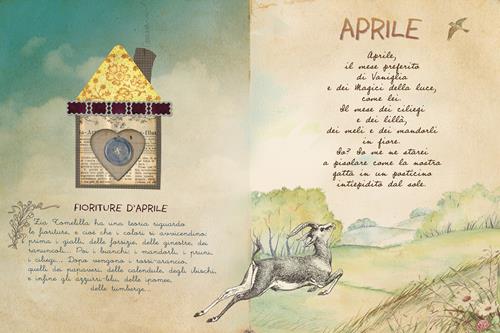 FIORITURE D'APRILE
Zia Tomelilla ha una teoria riguardo
le fioriture, e cioè che i colori si avvicendino:
prima i gialli, delle forsizie, delle ginestre, dei
ranuncoli... Poi i bianchi: i mandorli, i pruni,
i ciliegi... Dopo vengono i rossi-arancio,
quelli dei papaveri, delle calendule, degli ibischi,
e infine gli azzurri-blu, delle ipomee,
delle tumberge...
APRILE
Aprile,
il mese preferito
di Vaniglia
e dei Magici della luce,
come lei.
Il mese dei ciliegi
e dei lillà,
dei meli e dei mandorli
in fiore.
Io? Io me ne starei
a pisolare come la nostra
gatta in un posticino
intiepidito dal sole.